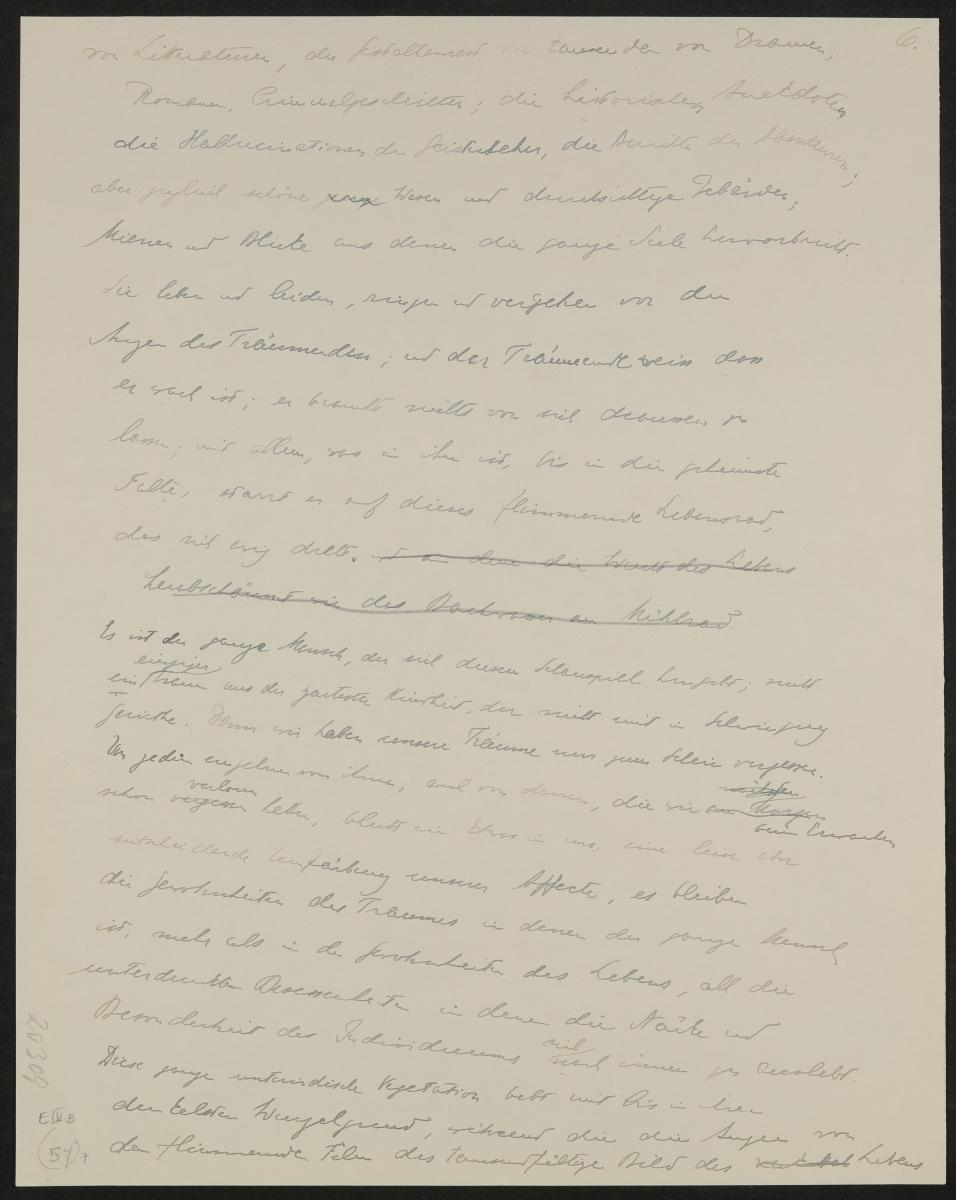 6.
von Litteraturen, die Gestaltenwelt von tausenden von Dramen,
Romanen, Criminalgeschichten; die historischen Anekdoten
die Hallucinationen der Geisterseher, die Berichte der Abenteurer;
aber zugleich schöne Wesen und durchsichtige Gebärden;
Mienen und Blicke aus denen die ganze Seele hervorbricht.
Sie leben und leiden, ringen und vergehen vor den
Augen des Träumenden; und der Träumende weiss dass
er wach ist; er braucht nichts von sich draussen zu
lassen; mit allem, was in ihm ist, bis in die geheimste
Falte, starrt er auf dieses flimmernde Lebensrad,
das sich ewig dreht. und an dem die Wucht des Lebens
herabschäumt wie das Bachwasser am Mühlrad.
Es ist der ganze Mensch, der sich diesem Schauspiel hingibt; nicht
einziger
ein Traum aus der zartesten Kindheit, der nicht mit in Schwingung
geriethe. Denn wir haben unsere Träume nur zum Schein vergessen.
Von jedem einzelnen von ihnen, auch von denen, die wir am Morgen
beim Erwachen
verloren
schon vergessen hatten, bleibt ein Etwas in uns, eine leise aber
entscheidende Umfärbung unserer Affecte, es bleiben
die Gewohnheiten des Traumes in denen der ganze Mensch
ist, mehr als in den Gewohnheiten des Lebens, all die
unterdrückten Besessenheiten in denen die Stärke und
Besonderheit des Individuums
sich
nach innen zu auslebt.
Diese ganze unterirdische Vegetation bebt mit bis in ihren
dunkelsten Wurzelgrund, während die Augen von
dem flimmernden Film das tausendfältige Bild des Lebens
20309
E IV B
57
7